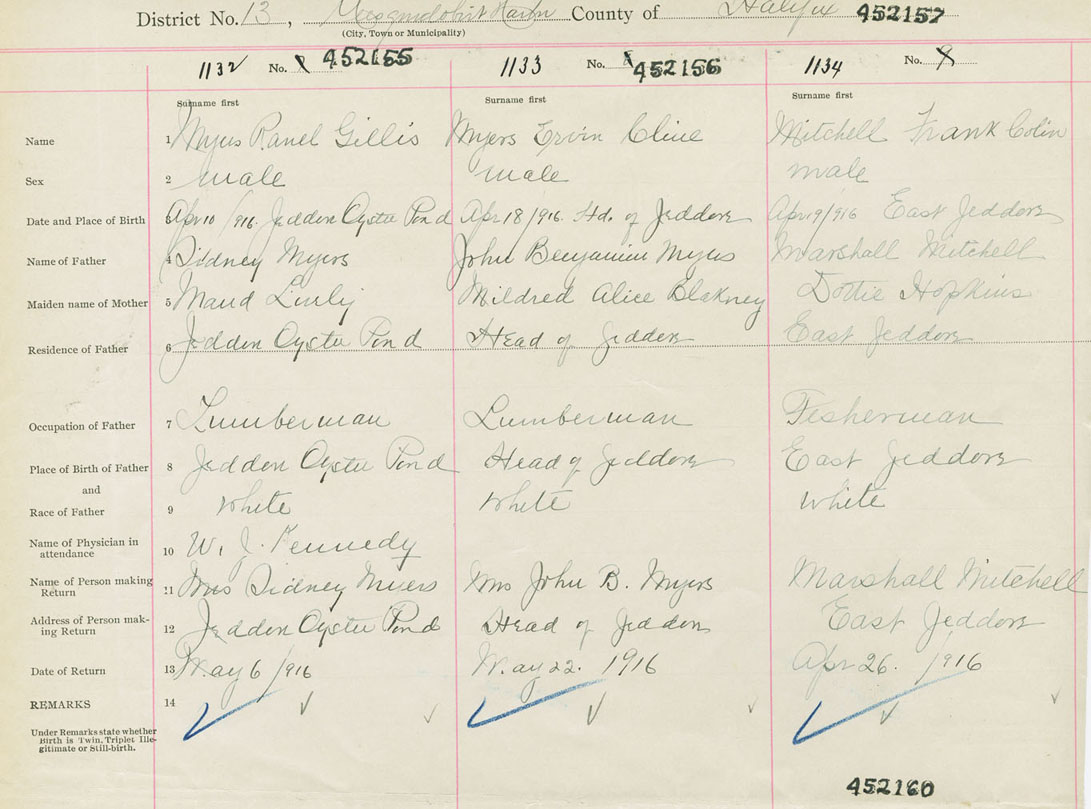 District No. 13, Musquodoboit Harbr County of Halifax 452157
(City, Town or Municipality)
1132 No. 8 452155 1133 No. 452156 1134 No.
Surname first Surname first Surname first
Name 1 Myers Ranel Gillis Myers Ervin Clive Mitchell Frank Colin
Sex 2 male male male
Date and Place of Birth Apr 10 /916. Jeddore Oyster Pond Apr 18/916. Hd. of Jeddore Apr 19/916 East Jeddore
Name of Father 4 Sidney Myers John Benjamin Myers Marshall Mitchell
Maiden name of Mother 5 Maud Mildred Alice Blakney Dottie Hopkins
Residence of Father 6 Jeddore Oyster Pond Head of Jeddore East Jeddore
Occupation of Father 7 Lumberman Lumberman Fisherman
Place of Birth of Father 8 Jeddore Oyster Pond Head of Jeddore East Jeddore
and
Race of Father 9 White White White
Name of Physician in
attendance 10 W. J. Kennedy
Name of Person making
Return 11 Mrs Sidney Myers Mrs John B. Myers Marshall Mitchell
Address of Person mak-
ing Return 12 Jeddore Oyster Pond Head of Jeddore East Jeddore
Date of Return 13 May 6 /916 May 22. 1916 Apr 26. /916
REMARKS 14
Under Remarks state whether
Birth is Twin, Triplet Ille-
gitimate or Still-birth.
452160